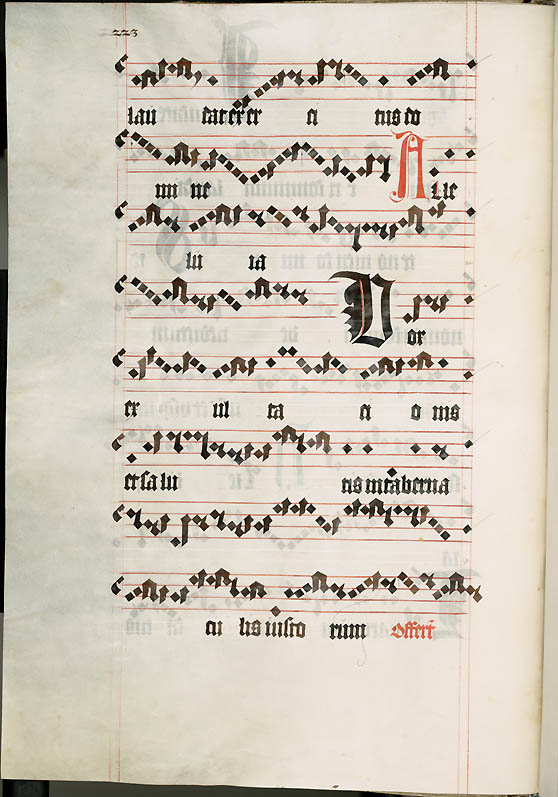 223
lau dat exer ci tus do
mi ne Alle
lu ia
Vox
ex ul ta ci o nis
et sa lu tis in taberna
cu lis iusto rum Offert